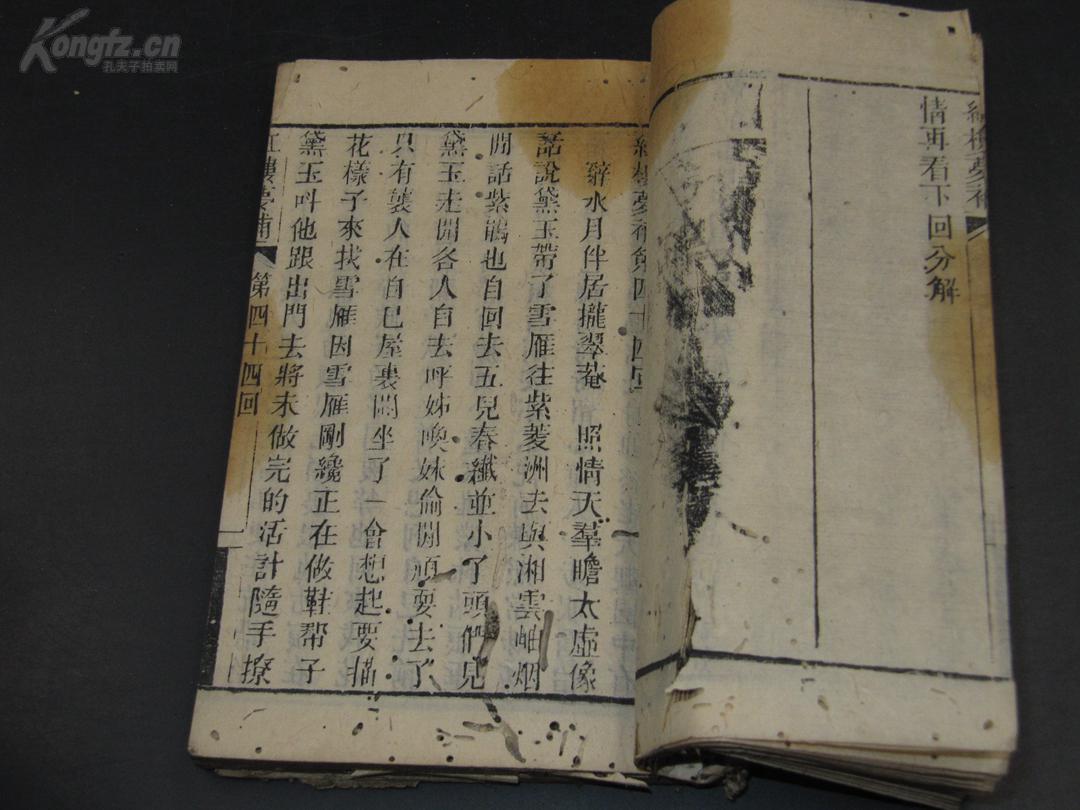 Kongfz.cn
孔夫子拍卖网
情再看下回分解
紅樓夢補第四十四回
辭水月伴居攏翠菴　照情天羣瞻太虛像
話說黛玉帶了雪雁往紫菱洲去與湘雲岫烟
閒話紫鵑也自回去五兒春纖並小了頭們見
黛玉走開各人自去呼姊喚妹偷閒頑耍去了
只有襲人在自己屋裏閒坐了一會想起要描
花樣子來找雪雁因雪雁剛纔正在做鞋帮子
黛玉呌他跟出門去將未做完的活計隨手撩
紅樓夢補　第四十四回